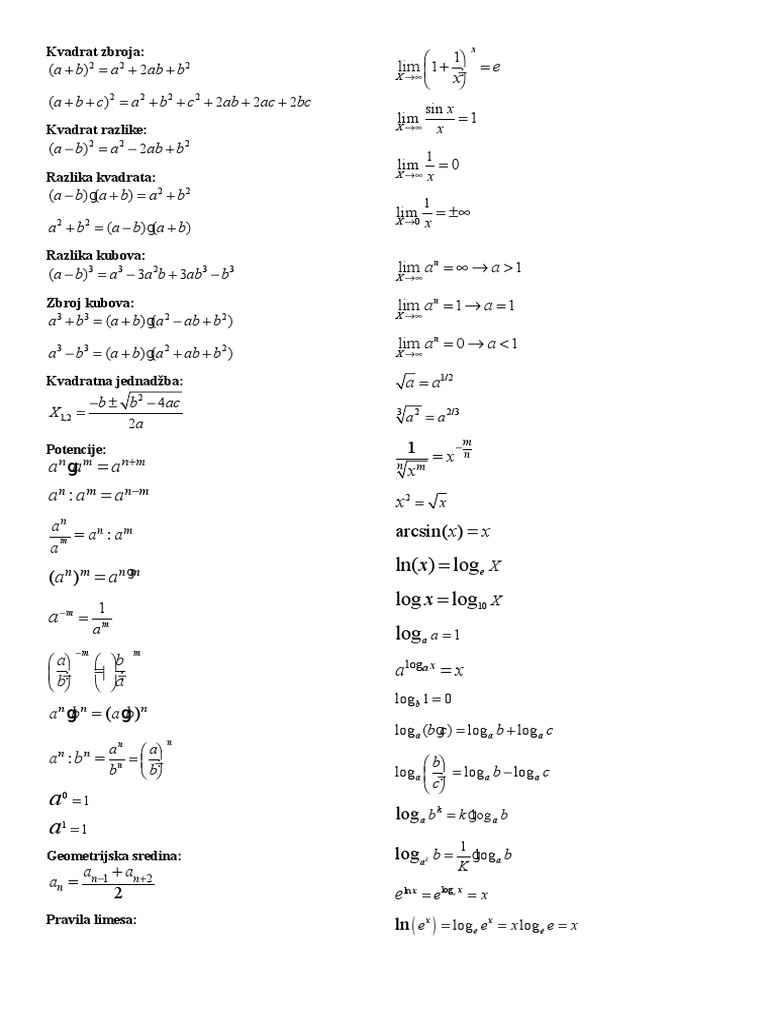 Kvadrat zbroja:
(a + b)² = a² + 2ab + b²
(a + b + c)² = a² + b² + c² + 2ab + 2ac + 2bc
Kvadrat razlike:
(a − b)² = a² − 2ab + b²
Razlika kvadrata:
(a − b)g(a + b) = a² + b²
a² + b² = (a − b)g(a + b)
Razlika kubova:
(a − b)³ = a³ − 3a²b + 3ab³ − b³
Zbroj kubova:
a³ + b³ = (a + b)g(a² − ab + b²)
a³ − b³ = (a + b)g(a² + ab + b²)
Kvadratna jednadžba:
X₁,₂ = (−b ± √(b² − 4ac)) / 2a
Potencije:
aⁿ g aᵐ = aⁿ⁺ᵐ
aⁿ : aᵐ = aⁿ⁻ᵐ
aⁿ / aᵐ = aⁿ : aᵐ
(aⁿ)ᵐ = aⁿᵍᵐ
a⁻ᵐ = 1 / aᵐ
(a / b)⁻ᵐ = (b / a)ᵐ
aⁿ g bⁿ = (a g b)ⁿ
aⁿ : bⁿ = aⁿ / bⁿ = (a / b)ⁿ
a⁰ = 1
a¹ = 1
Geometrijska sredina:
aₙ = (aₙ₋₁ + aₙ₊₂) / 2
Pravila limesa:
lim X→∞ (1 + 1/x)ˣ = e
lim X→∞ sin x / x = 1
lim X→∞ 1 / x = 0
lim X→0 1 / x = ±∞
lim X→∞ aⁿ = ∞ → a > 1
lim X→∞ aⁿ = 1 → a = 1
lim X→∞ aⁿ = 0 → a < 1
√a = a^1/2
³√a² = a^2/3
1 / ⁿ√xᵐ = x^−m/n
x² = √x
arcsin(x) = x
ln(x) = logₑ X
log x = log₁₀ X
logₐ a = 1
a^logₐ x = x
log_b 1 = 0
logₐ(b g c) = logₐ b + logₐ c
logₐ(b / c) = logₐ b − logₐ c
logₐ bᵏ = k g logₐ b
log_aᵏ b = 1/K g logₐ b
e^ln x = e^logₑ x = x
ln(eˣ) = logₑ eˣ = x logₑ e = x